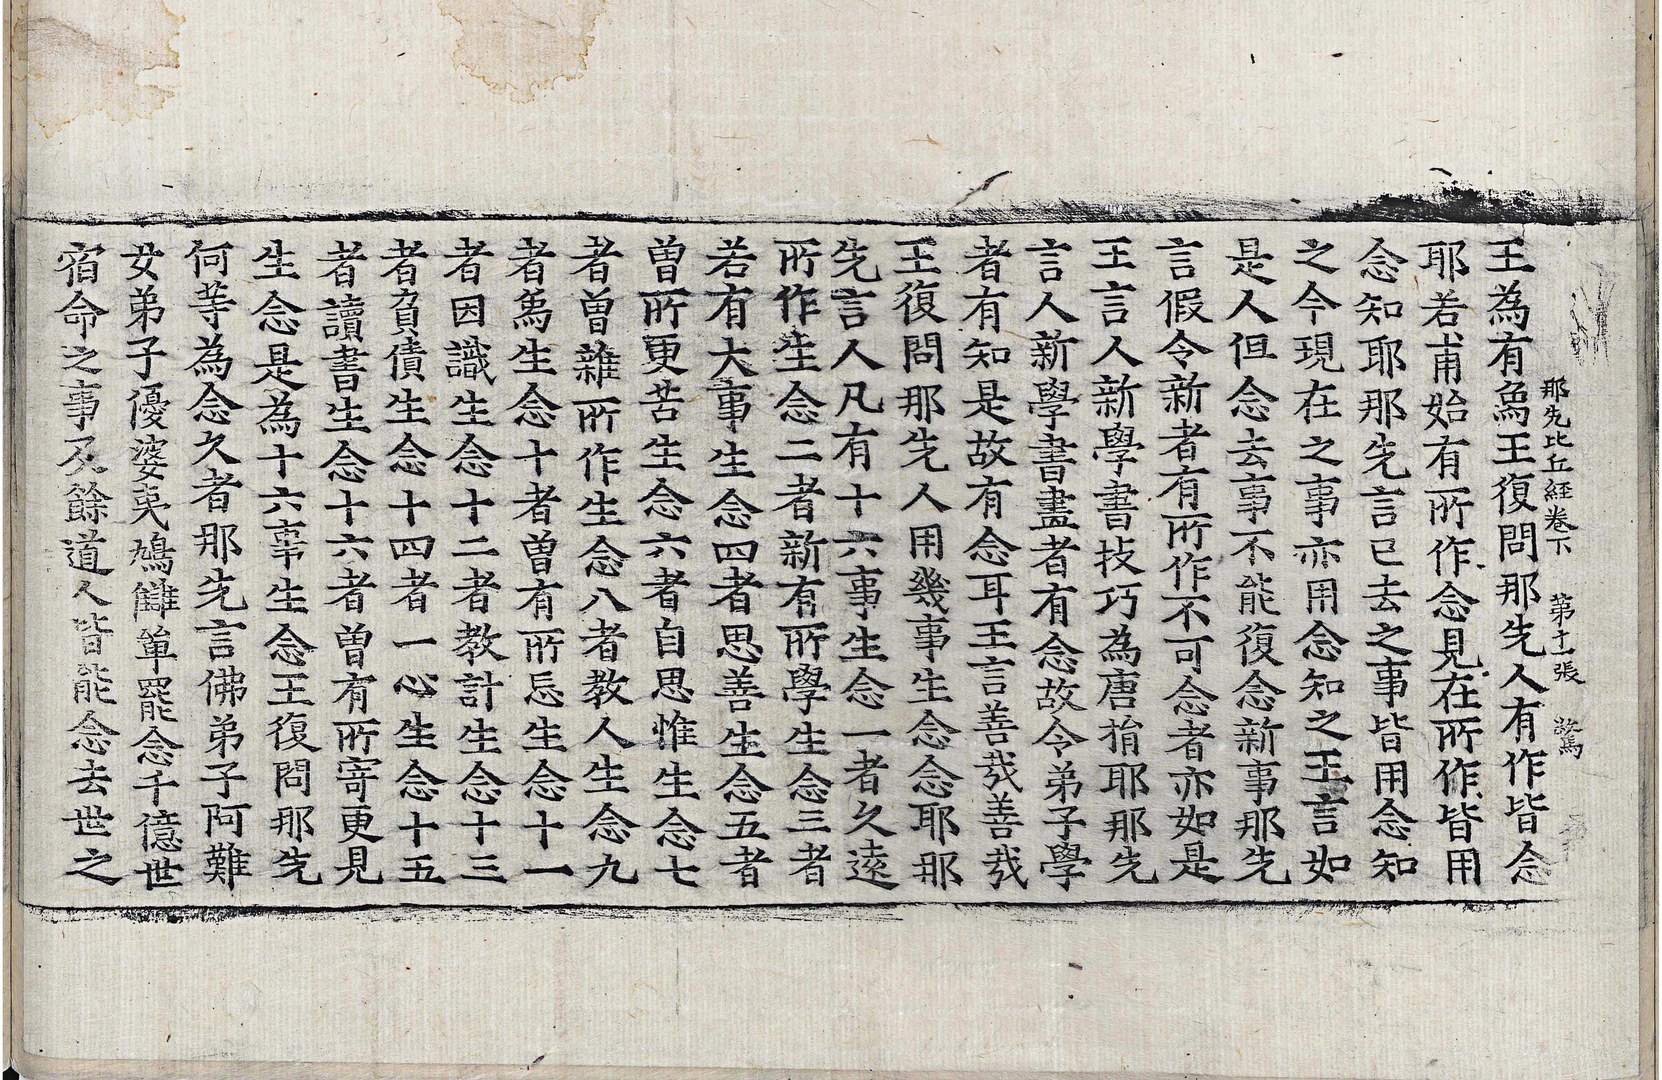 那先比丘経卷下 第十一張 驚
王為有烏王復問那先人有作皆念
耶若甫始有所作念見在所作皆用
念知耶那先言已去之事皆用念知
之今現在之事亦用念知之王言如
是人但念去事不能復念新事那先
言假令新者有所作不可念者亦如是
王言人新學書技巧為唐捐耶那先
言人新學書畫者有念故令弟子學
者有知是故有念耳王言善哉善哉
王復問那先人用幾事生念念耶那
先言人凡有十六事生念一者久遠
所作生念二者新有所學生念三者
若有大事生念四者思善生念五者
曽所更苦生念六者自思惟生念七
者曽雜所作生念八者教人生念九
者為生念十者曽有所忘生念十一
者因識生念十二者教計生念十三
者負債生念十四者一心生念十五
者讀書生念十六者曽有所寄更見
生念是為十六事生念王復問那先
何等為念久者那先言佛弟子阿難
女弟子優婆夷鳩讎單罷念千億世
宿命之事及餘道人皆能念去世之